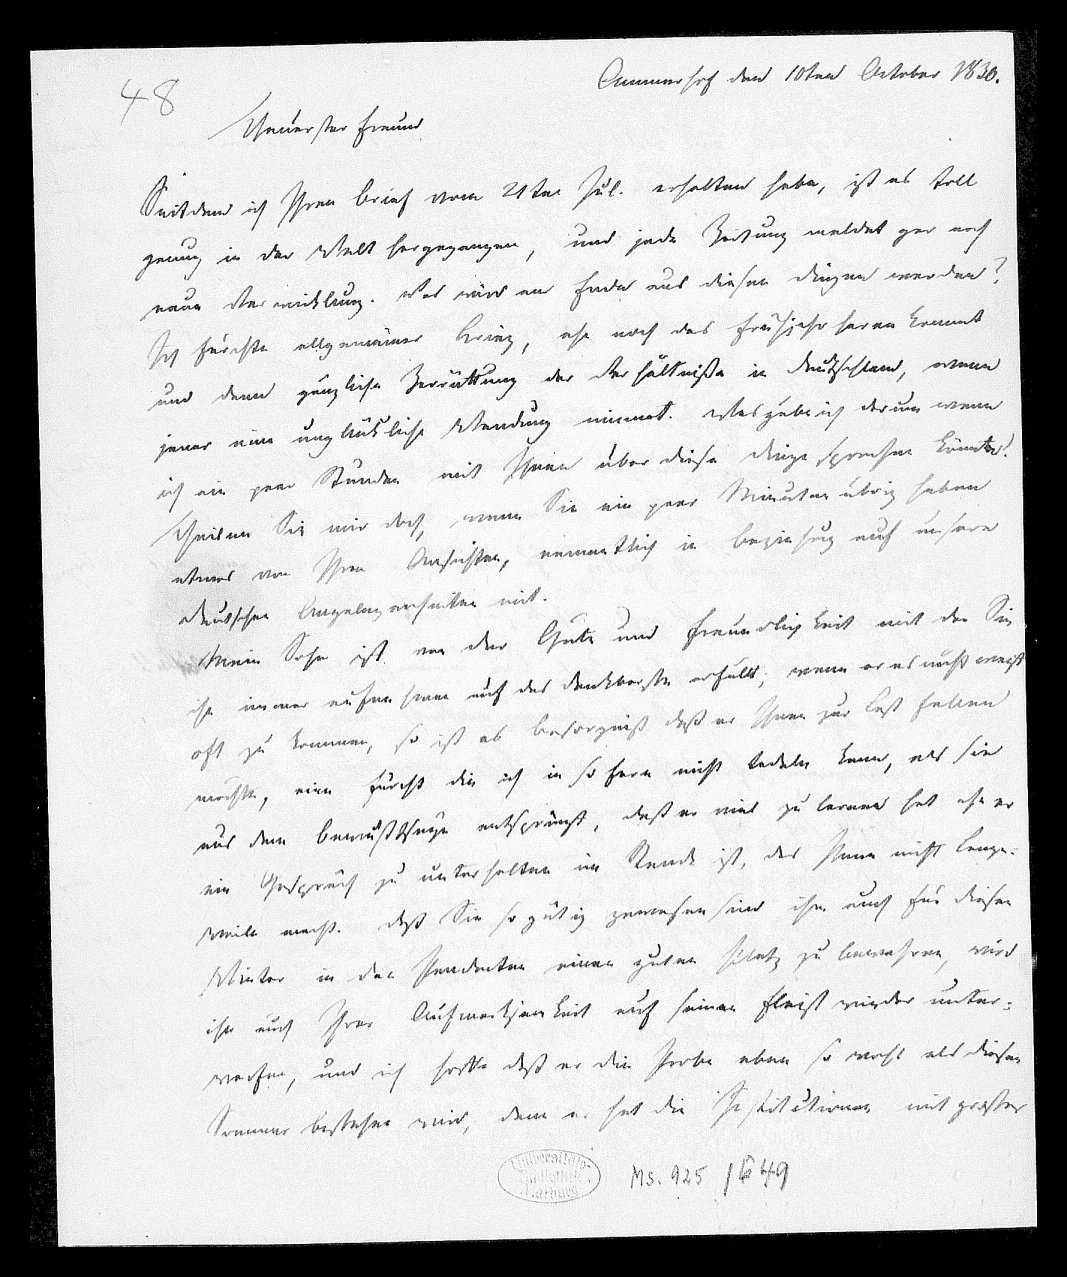 48
Ammerhof den 10ten October 1830.
Theuerster Freund
Seitdem ich Ihren Brief vom 21ten Jul. erhalten habe, ist es toll
genug in der Welt hergegangen, und jede Zeitung meldet gar noch
neue Verwicklung. Was wird am Ende aus diesen Dingen werden?
Ich fürchte allgemeinen Krieg, ehe noch das Frühjahr heran kommt
und dann gänzliche Zerrüttung der Verhältniße in Deutschland, wenn
jener eine unglükliche Wendung nimmt. Was gäbe ich darum wenn
ich ein paar Stunden mit Ihnen über diese Dinge sprechen könnte!
Theilen Sie mir doch, wenn Sie ein paar Minuten übrig haben
etwas von Ihren Ansichten, namentlich in Beziehung auf unsere
deutschen Angelegenheiten mit.
Mein Sohn ist von der Güte und Freundlichkeit mit der Sie
ihn immer aufnehmen auf das dankbarste erfüllt; wenn er es nicht wagt
oft zu kommen, so ist es Besorgniß daß er Ihnen zur Last fallen
möchte, eine Furcht die ich in so fern nicht tadeln kann, als sie
aus dem Bewußtseyn entspringt, daß er viel zu lernen hat ehe er
ein Gespräch zu unterhalten im Stande ist, das Ihnen nicht lange-
weile macht. Daß Sie so gütig gewesen sind ihm auch für diesen
Winter in den Pandecten einen guten Platz zu bewahren, wird
ihn auch Ihrer Aufmerksamkeit auf seinen Fleiß wieder unter-
werfen, und ich hoffe daß er die Probe eben so wohl als diesen
Sommer bestehen wird, denn er hat die Institutionen mit großer
Universitäts-
Bibliothek
Marburg
Ms. 925 / 649